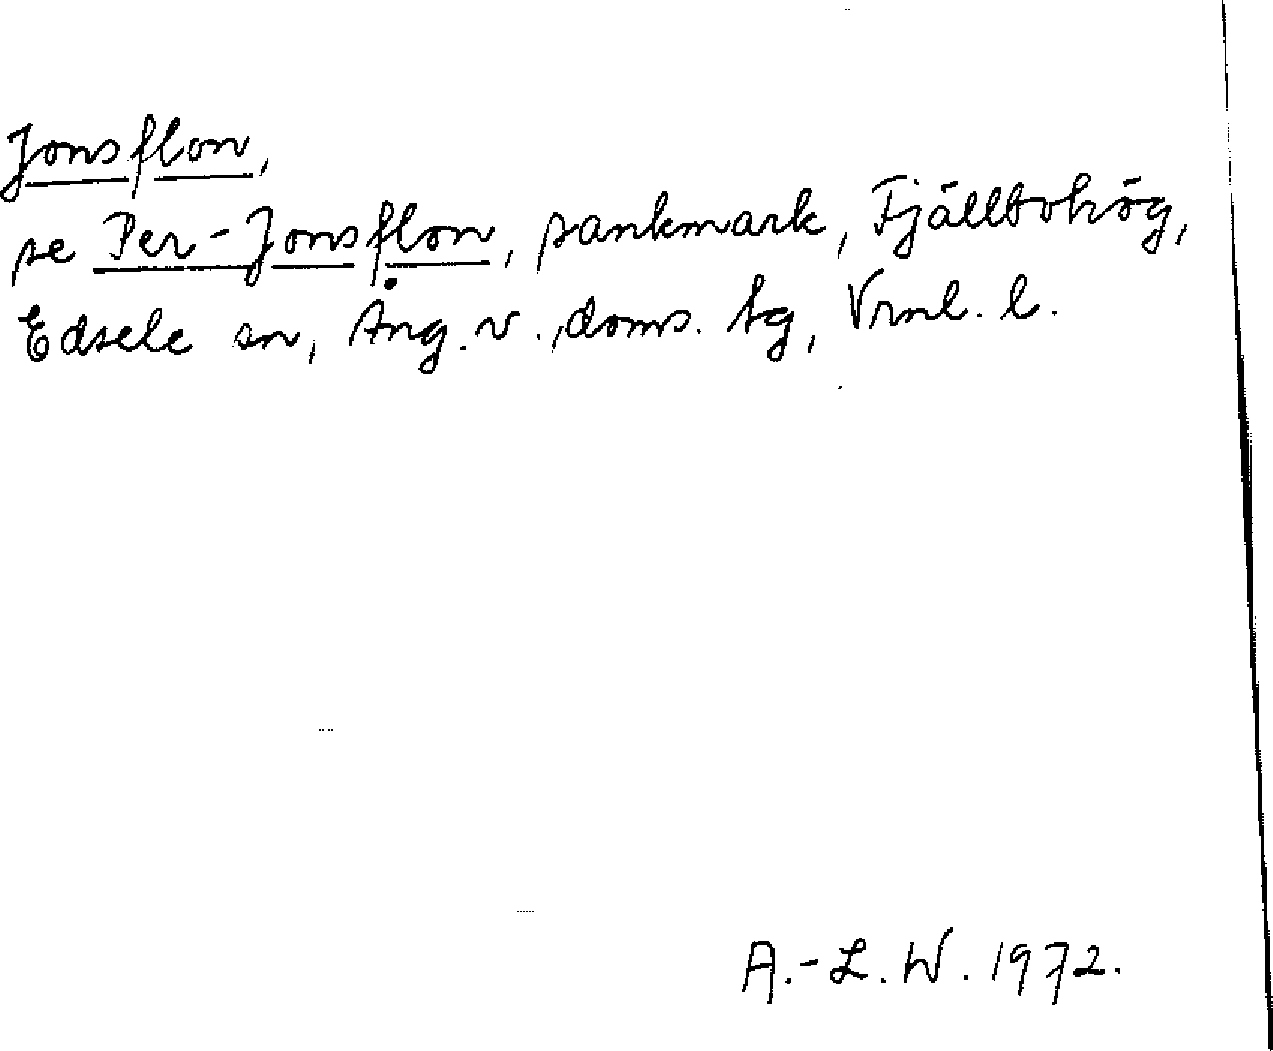 Jonsflon,
se Per-Jonsflon, sankmark, Fjällbohög,
Edsele sn, Ång. v., doms. tg, Vrnl. l.
A.-L. W. 1972.